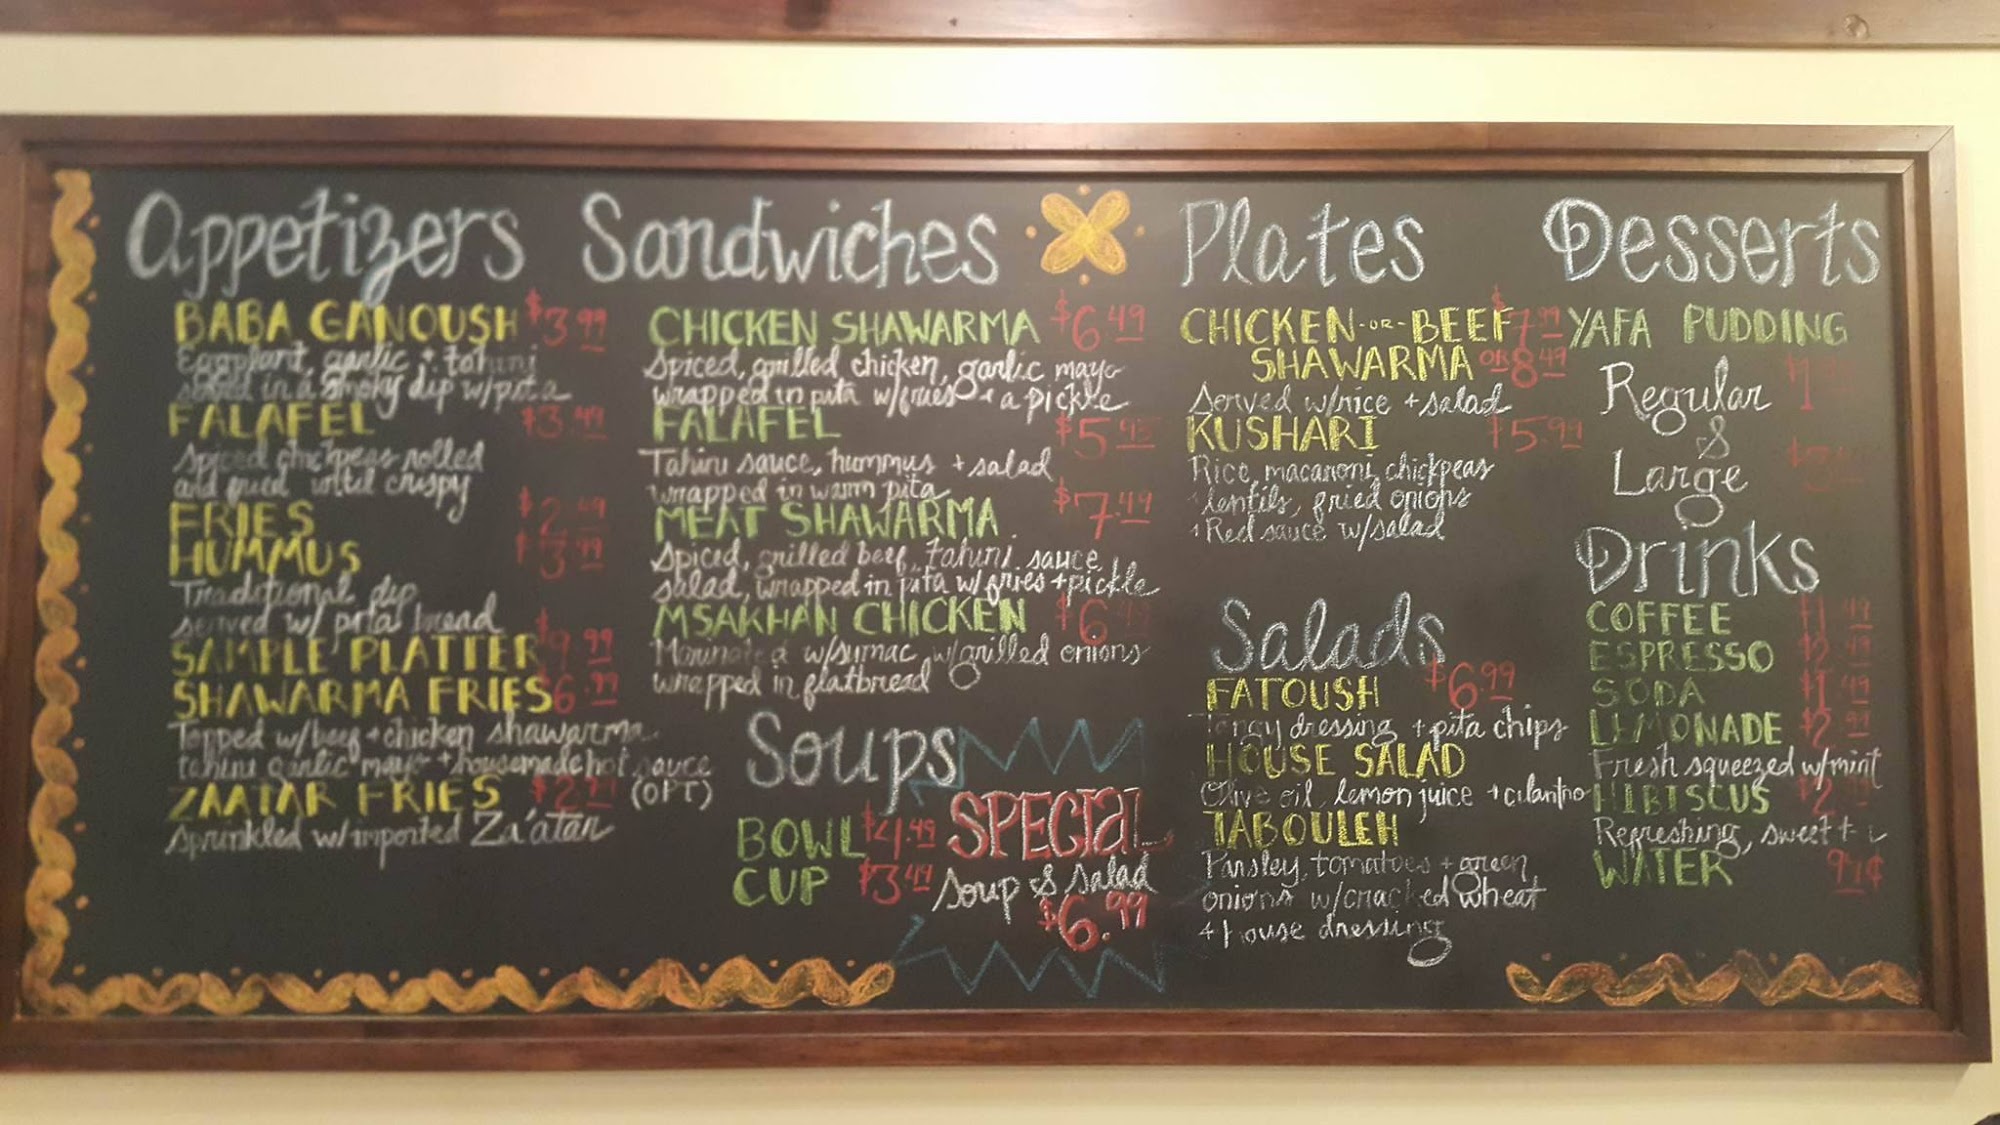 Appetizers
BABA GANOUSH $3.99
Eggplant, garlic + tahini
served in a smoky dip w/pita
FALAFEL $3.49
Spiced chickpeas rolled
and fried until crispy
FRIES $2.49
HUMMUS $3.99
Traditional dip
served w/ pita bread
SAMPLE PLATTER $9.99
SHAWARMA FRIES $6.99
Topped w/beef + chicken shawarma
tahini garlic mayo + housemade hot sauce
(OPT)
ZAATAR FRIES $2.99
Sprinkled w/imported Za'atar
Sandwiches
CHICKEN SHAWARMA $6.49
Spiced, grilled chicken, garlic mayo
wrapped in pita w/fries + a pickle
FALAFEL $5.95
Tahini sauce, hummus + salad
wrapped in warm pita
MEAT SHAWARMA $7.49
Spiced, grilled beef, tahini sauce
salad, wrapped in pita w/fries + pickle
MSAKHAN CHICKEN $6
Marinated w/sumac w/grilled onions
wrapped in flatbread
Soups
BOWL $4.49
CUP $3.49
SPECIAL
Soup & Salad
$6.99
Plates
CHICKEN -OR- BEEF $7.99
SHAWARMA OR 8.49
Served w/rice + salad
KUSHARI $5.99
Rice, macaroni, chickpeas
lentils, fried onions
+ Red sauce w/salad
Salads
$6.99
FATOUSH
Tangy dressing + pita chips
HOUSE SALAD
Olive oil, lemon juice + cilantro
TABOULEH
Parsley, tomatoes + green
onions w/cracked wheat
+ house dressing
Desserts
YAFA PUDDING
Regular
&
Large
Drinks
COFFEE $1.49
ESPRESSO $2.49
SODA $1.49
LEMONADE $2.99
Fresh squeezed w/mint
HIBISCUS
Refreshing, sweet +
WATER